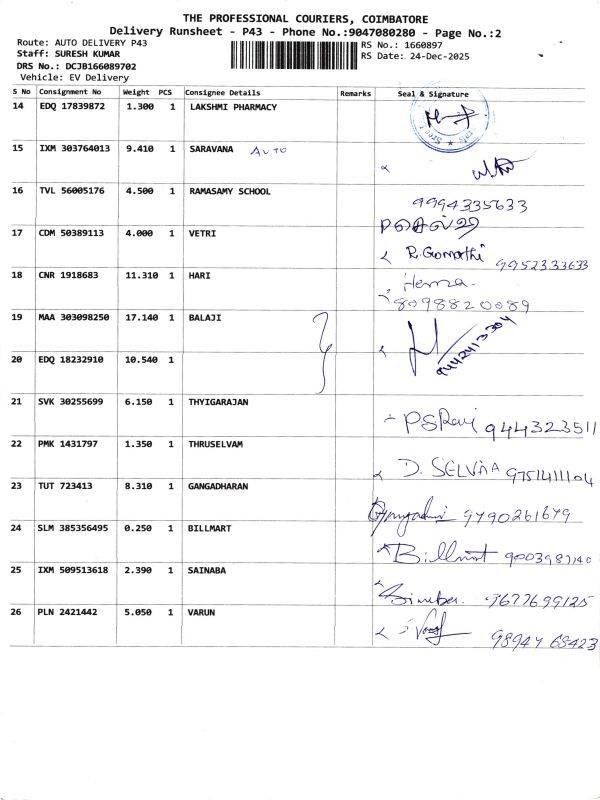 THE PROFESSIONAL COURIERS, COIMBATORE
Delivery Runsheet - P43 - Phone No.:9047080280 - Page No.:2
Route: AUTO DELIVERY P43
Staff: SURESH KUMAR
DRS No.: DCJB166089702
Vehicle: EV Delivery
RS No.: 1660897
RS Date: 24-Dec-2025
S No Consignment No Weight PCS Consignee Details Remarks Seal & Signature
14 EDQ 17839872 1.300 1 LAKSHMI PHARMACY
15 IXM 303764013 9.410 1 SARAVANA AUTO
16 TVL 56005176 4.500 1 RAMASAMY SCHOOL 9994335633
17 CDM 50389113 4.000 1 VETRI R. Gomathi 9952333633
18 CNR 1918683 11.310 1 HARI Hema. 8098820089
19 MAA 303098250 17.140 1 BALAJI 9442413304
20 EDQ 18232910 10.540 1
21 SVK 30255699 6.150 1 THYIGARAJAN PSRavi 944323511
22 PMK 1431797 1.350 1 THRUSELVAM D. SELVAA 9751411104
23 TUT 723413 8.310 1 GANGADHARAN 9790261679
24 SLM 385356495 0.250 1 BILLMART Billmart 9003987140
25 IXM 509513618 2.390 1 SAINABA 9677699125
26 PLN 2421442 5.050 1 VARUN 98947 68423